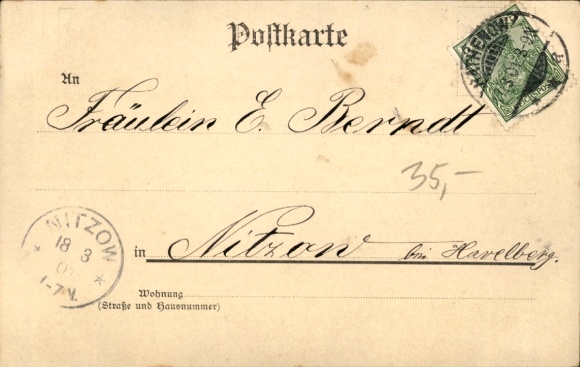 Postkarte
An
Fräulein E. Berndt
35,-
in Nitzow bei Havelberg.
Wohnung
(Straße und Hausnummer)
NITZOW
18 3
1-7 V.
RATHENOW